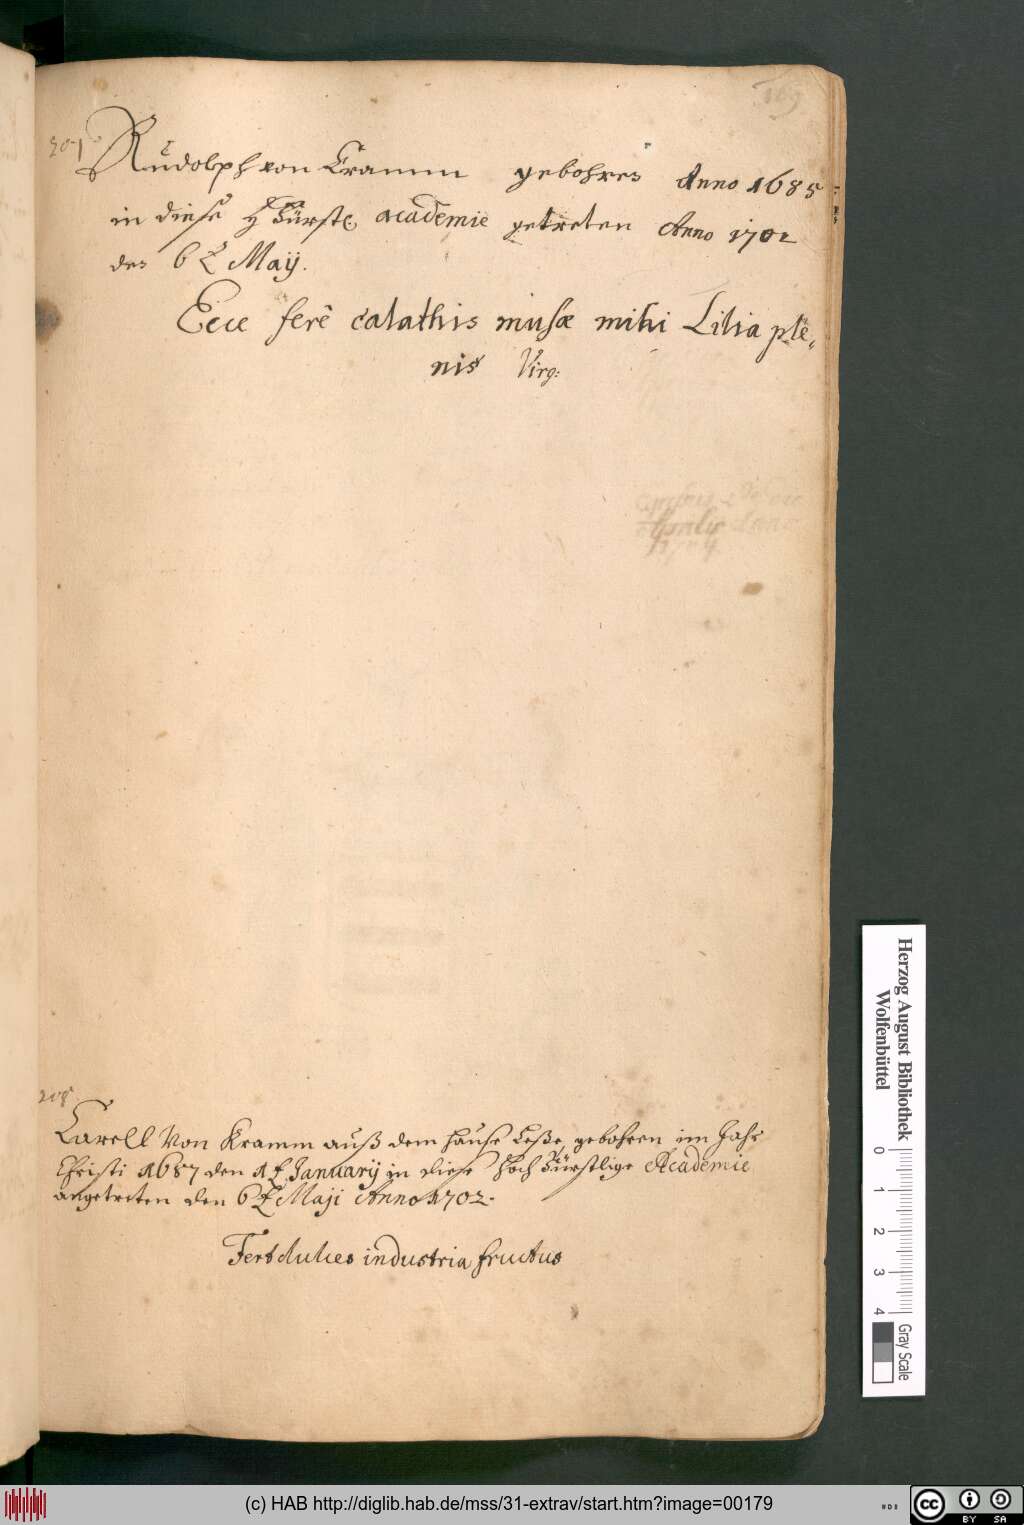 169
207
Rudolph von Cramm gebohren Anno 1685
in diese H Fürstl. academie getreten Anno 1702
den 6 t May.
Ecce ferê calathis musæ mihi Lilia ple,
nis Virg:
208
Carell Von Kramm auß dem Hause Leße, gebohren im Jahr
Christi 1687 den 1 t January in diese Hoch Fürstlige Academie
angetreten den 6 t Maji Anno 1702.
Fert dulces industria fructus
Herzog August Bibliothek
Wolfenbüttel
0 1 2 3 4
Gray Scale
(c) HAB http://diglib.hab.de/mss/31-extrav/start.htm?image=00179
cc BY SA